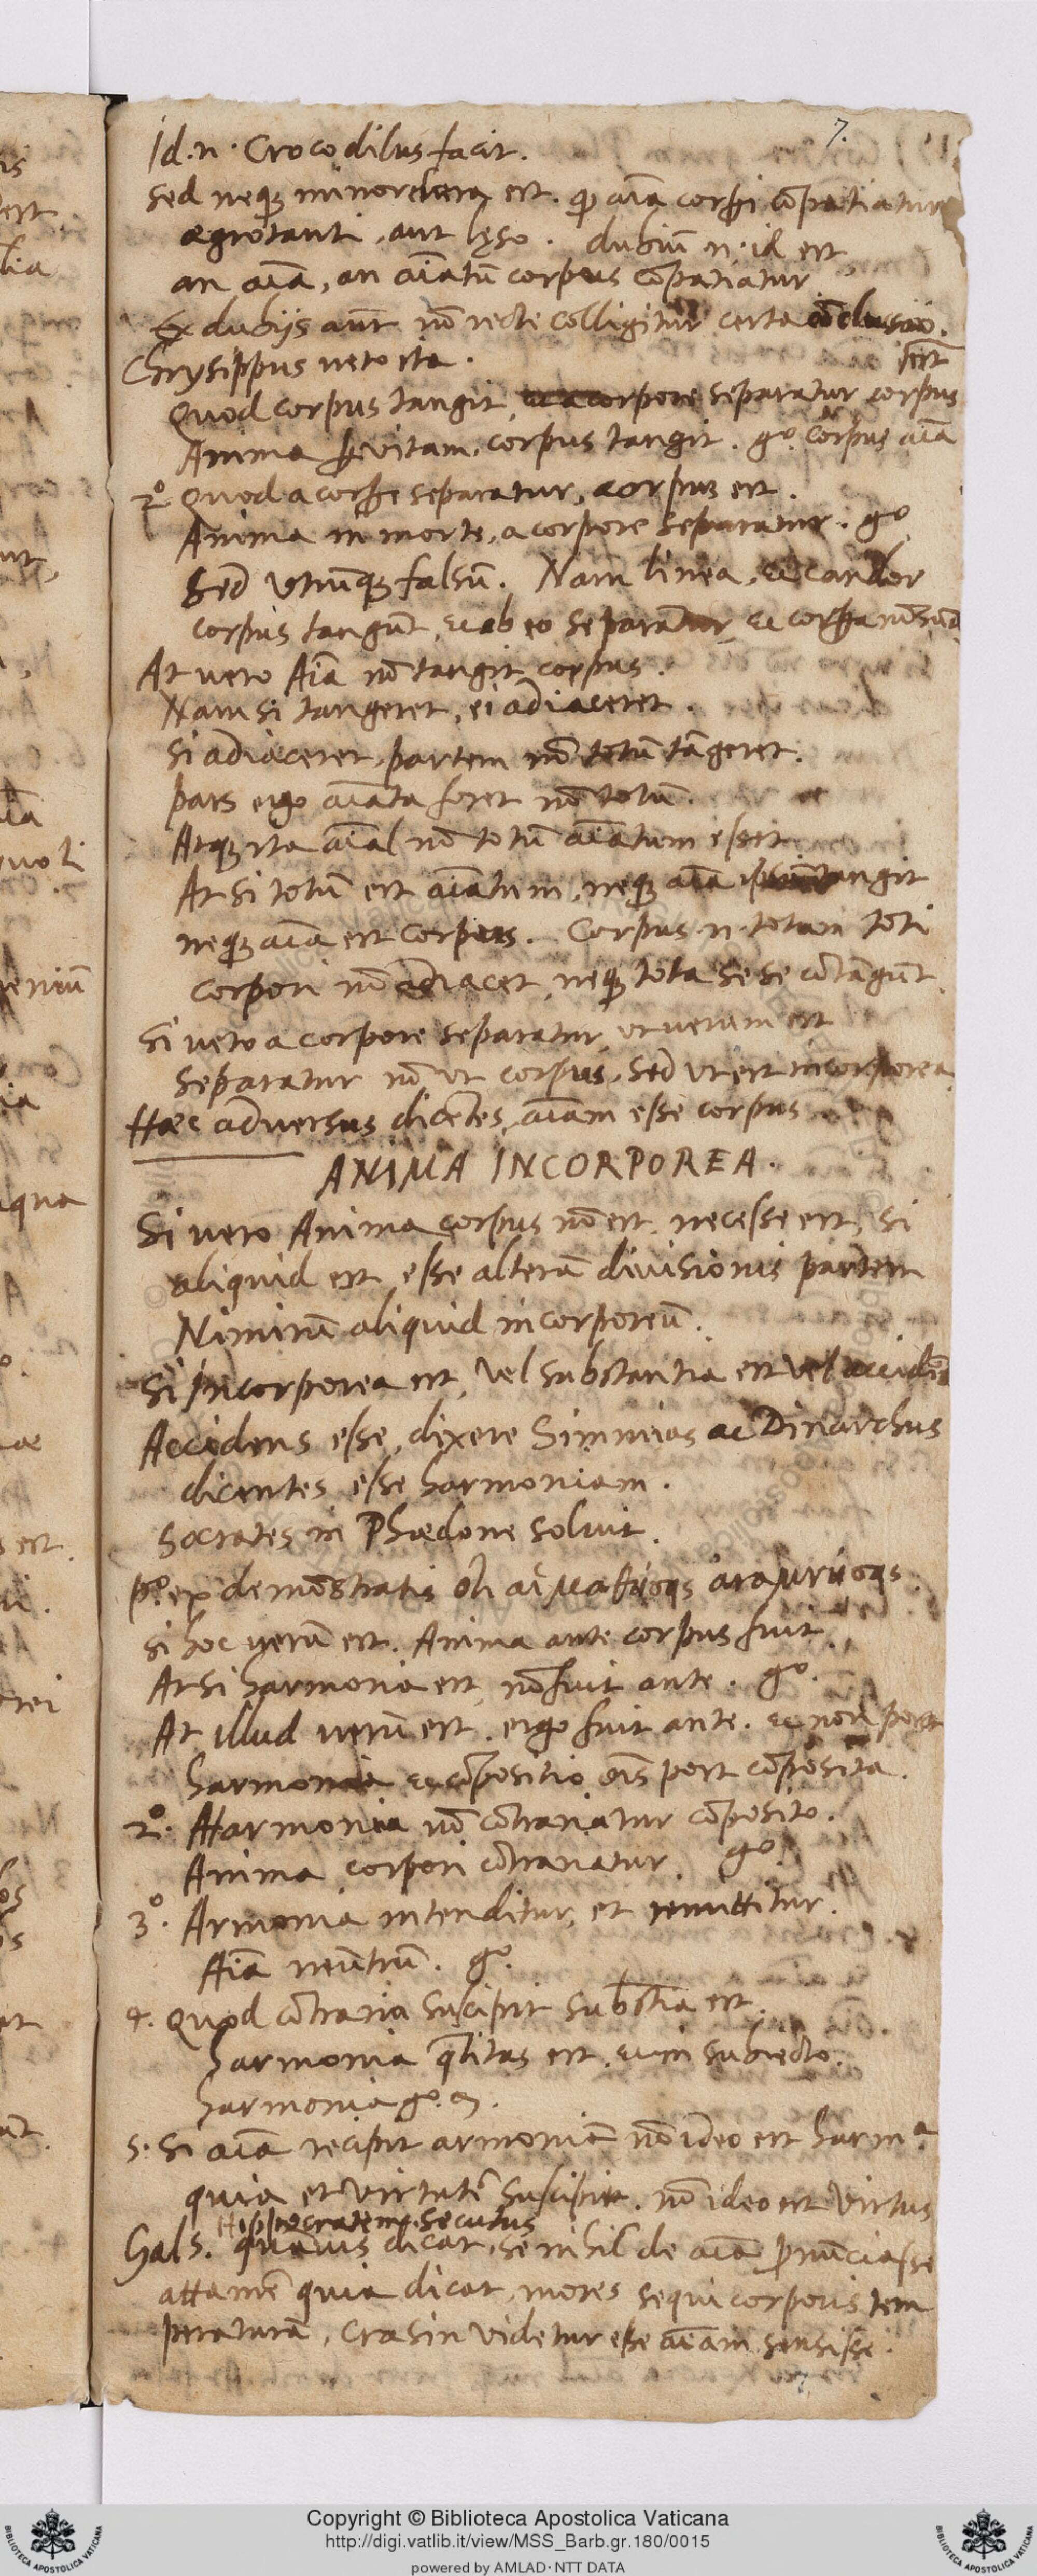 7.
Id. n. Crocodilus facit.
Sed neq; minor vera est. qp aīa corpori cōpatiatur
ægrotanti, aut lęso. dubiū n. id est
an aīa, an aīatū corpus cōpatiatur
Ex dubijs aūt nō recte colligitur certa cōclusio.
Chrysippus vero ita.
Quod corpus tangit, separatur corpus
Anima per vitam, corpus tangit. gº. corpus aīa
2º. Quod a corpore separatur, corpus est.
Anima in morte, a corpore separatur. gº
Sed utrunq; falsū. Nam linea, et candor
corpus tangūt, et ab eo separātur, et corpora nō sūt.
At vero Aīa nō tangit corpus.
Nam si tangeret, ei adiaceret.
Si adiaceret, partem nō totū tāgeret.
pars ergo aīata foret nō totū.
Atq; ita aīal nō totū aīatum essit
At si totū est aīatum, neq; aīa tangit
neq; aīa est corpus. Corpus n. totum toti
corpori nō adiacet, neq; tota sese cōtāgūt.
Si vero a corpore separatur, ut verum est
Separatur nō ut corpus, sed ut est incorporea.
Hæc adversus dicētes, aīam esse corpus
ANIMA INCORPOREA.
Si vero Anima corpus nō est, necesse est, si
aliquid est, esse alterā divisionis partem
Nimirū aliquid incorporeū.
Si Incorporea est, vel substantia est vel accidēs
Accidens esse, dixere Simmias ac Dinarchus
dicentes esse harmoniam.
Socrates in Phædone solvit.
pº. ex demōstratis ὅτι αἱ μαθήσεις ἀναμνήσεις.
si hoc verū est. Anima ante corpus fuit.
At si harmonia est, nō fuit ante. gº.
At illud verū est. ergo fuit ante. et non post
harmonia et cōpositio oīs post cōposita.
2º. Harmonia nō cōtrariatur cōposito.
Anima corpori cōtrariatur. gº.
3º. Armonia intenditur, et remittitur.
Aīa neutrū. gº.
4. Quod cōtraria suscipit substīa est.
harmonia qlitas est, cum subiecto.
harmonia gº. n.
5. Si aīa recipit armoniā nō ideo est harmª.
quia et virtutē suscipit. nō ideo est virtus
Hippocratem secutus
Gals. quāvis dicat, se nihil de aīa pronūciasse
attamē quia dicat, mores sequi corporis tem
peraturā, Crasin videtur esse aīam sensisse.
Copyright © Biblioteca Apostolica Vaticana
http://digi.vatlib.it/view/MSS_Barb.gr.180/0015
powered by AMLAD·NTT DATA
BIBLIOTECA APOSTOLICA VATICANA